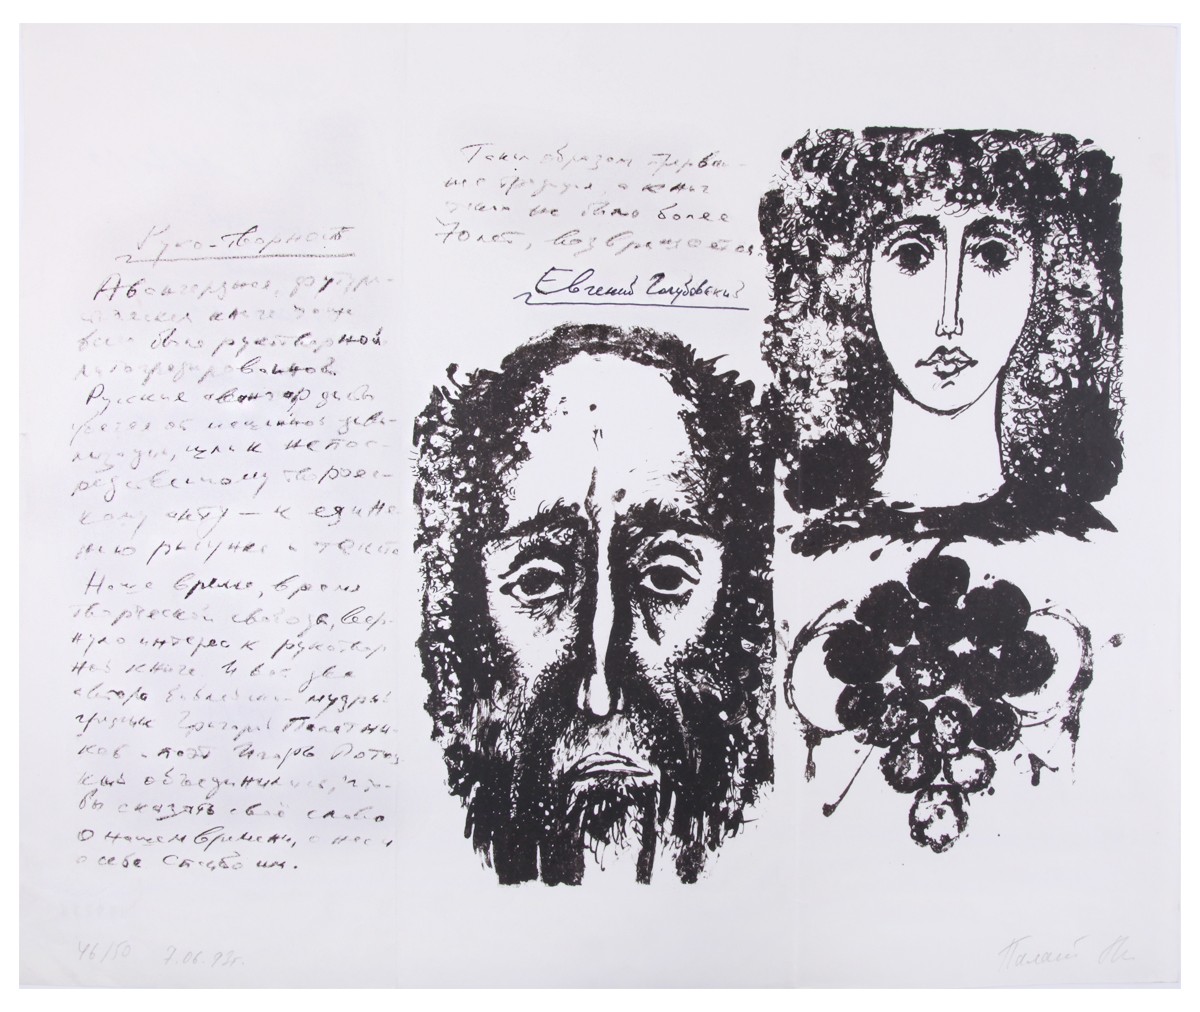 Руко-творность
Авангардная, футури-
стическая книга чаще
всего была рукотворной
литографированной.
Русские авангардисты
от машинной циви-
лизации, шли к непос-
редственному творчес-
кому акту – к едине-
нию рисунка и текста
Наше время, время
творческой свободы, вер-
нуло интерес к рукотвор
ной книге. И вот два
автора мудрый
график Григорий Палатни-
ков и поэт Игорь Потоц
кий объединились, что-
бы сказать своё слово
о нашем времени, о нас и
о себе. Спасибо им.
Таким образом прерван-
ная традиция, а книг
таких не было более
70 лет, возвращается
Евгений Голубовский
46/50 7.06.92г.
Палат